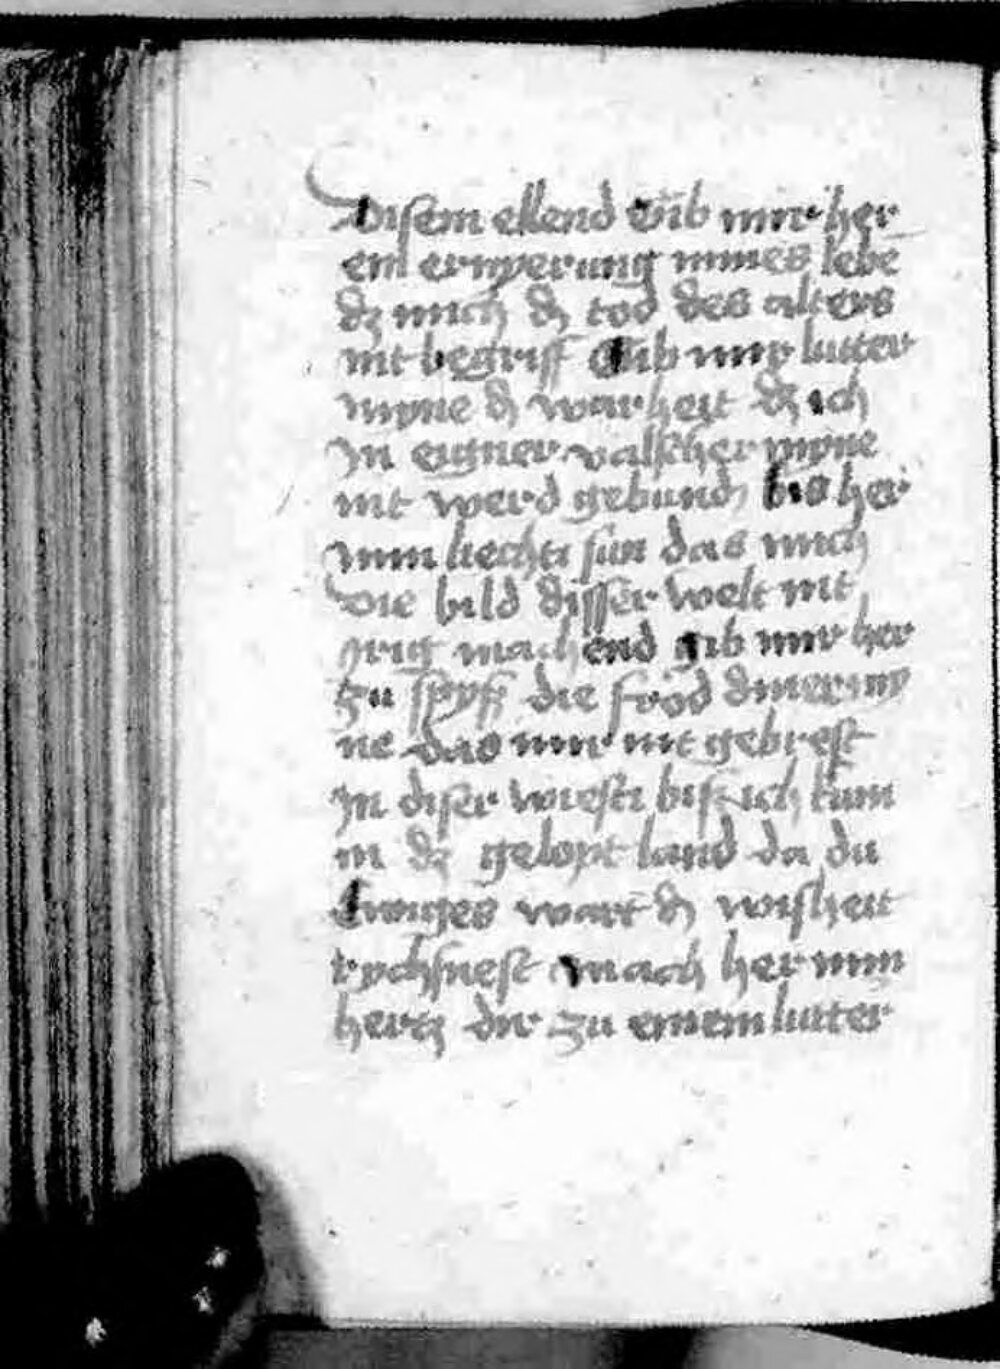 disem ellend Gib mir her
ein ernyerung mines lebe
dz mich dh tod des alters
nit begriff Gib mir lutter
myne dh warheit dz ich
Jn eigner valscher myne
nit werd gebundh bis her
min liecht sun das mich
die bild disser welt nit
yrig machend gib mir her
zu spyss die frod diner my
ne das mir nit gebrest
Jn diser wiesti bis ich kum
in dz gelopt land da du
Ewiges wort dh wisheit
rychsnest mach her min
hertz dir zu einem lutter